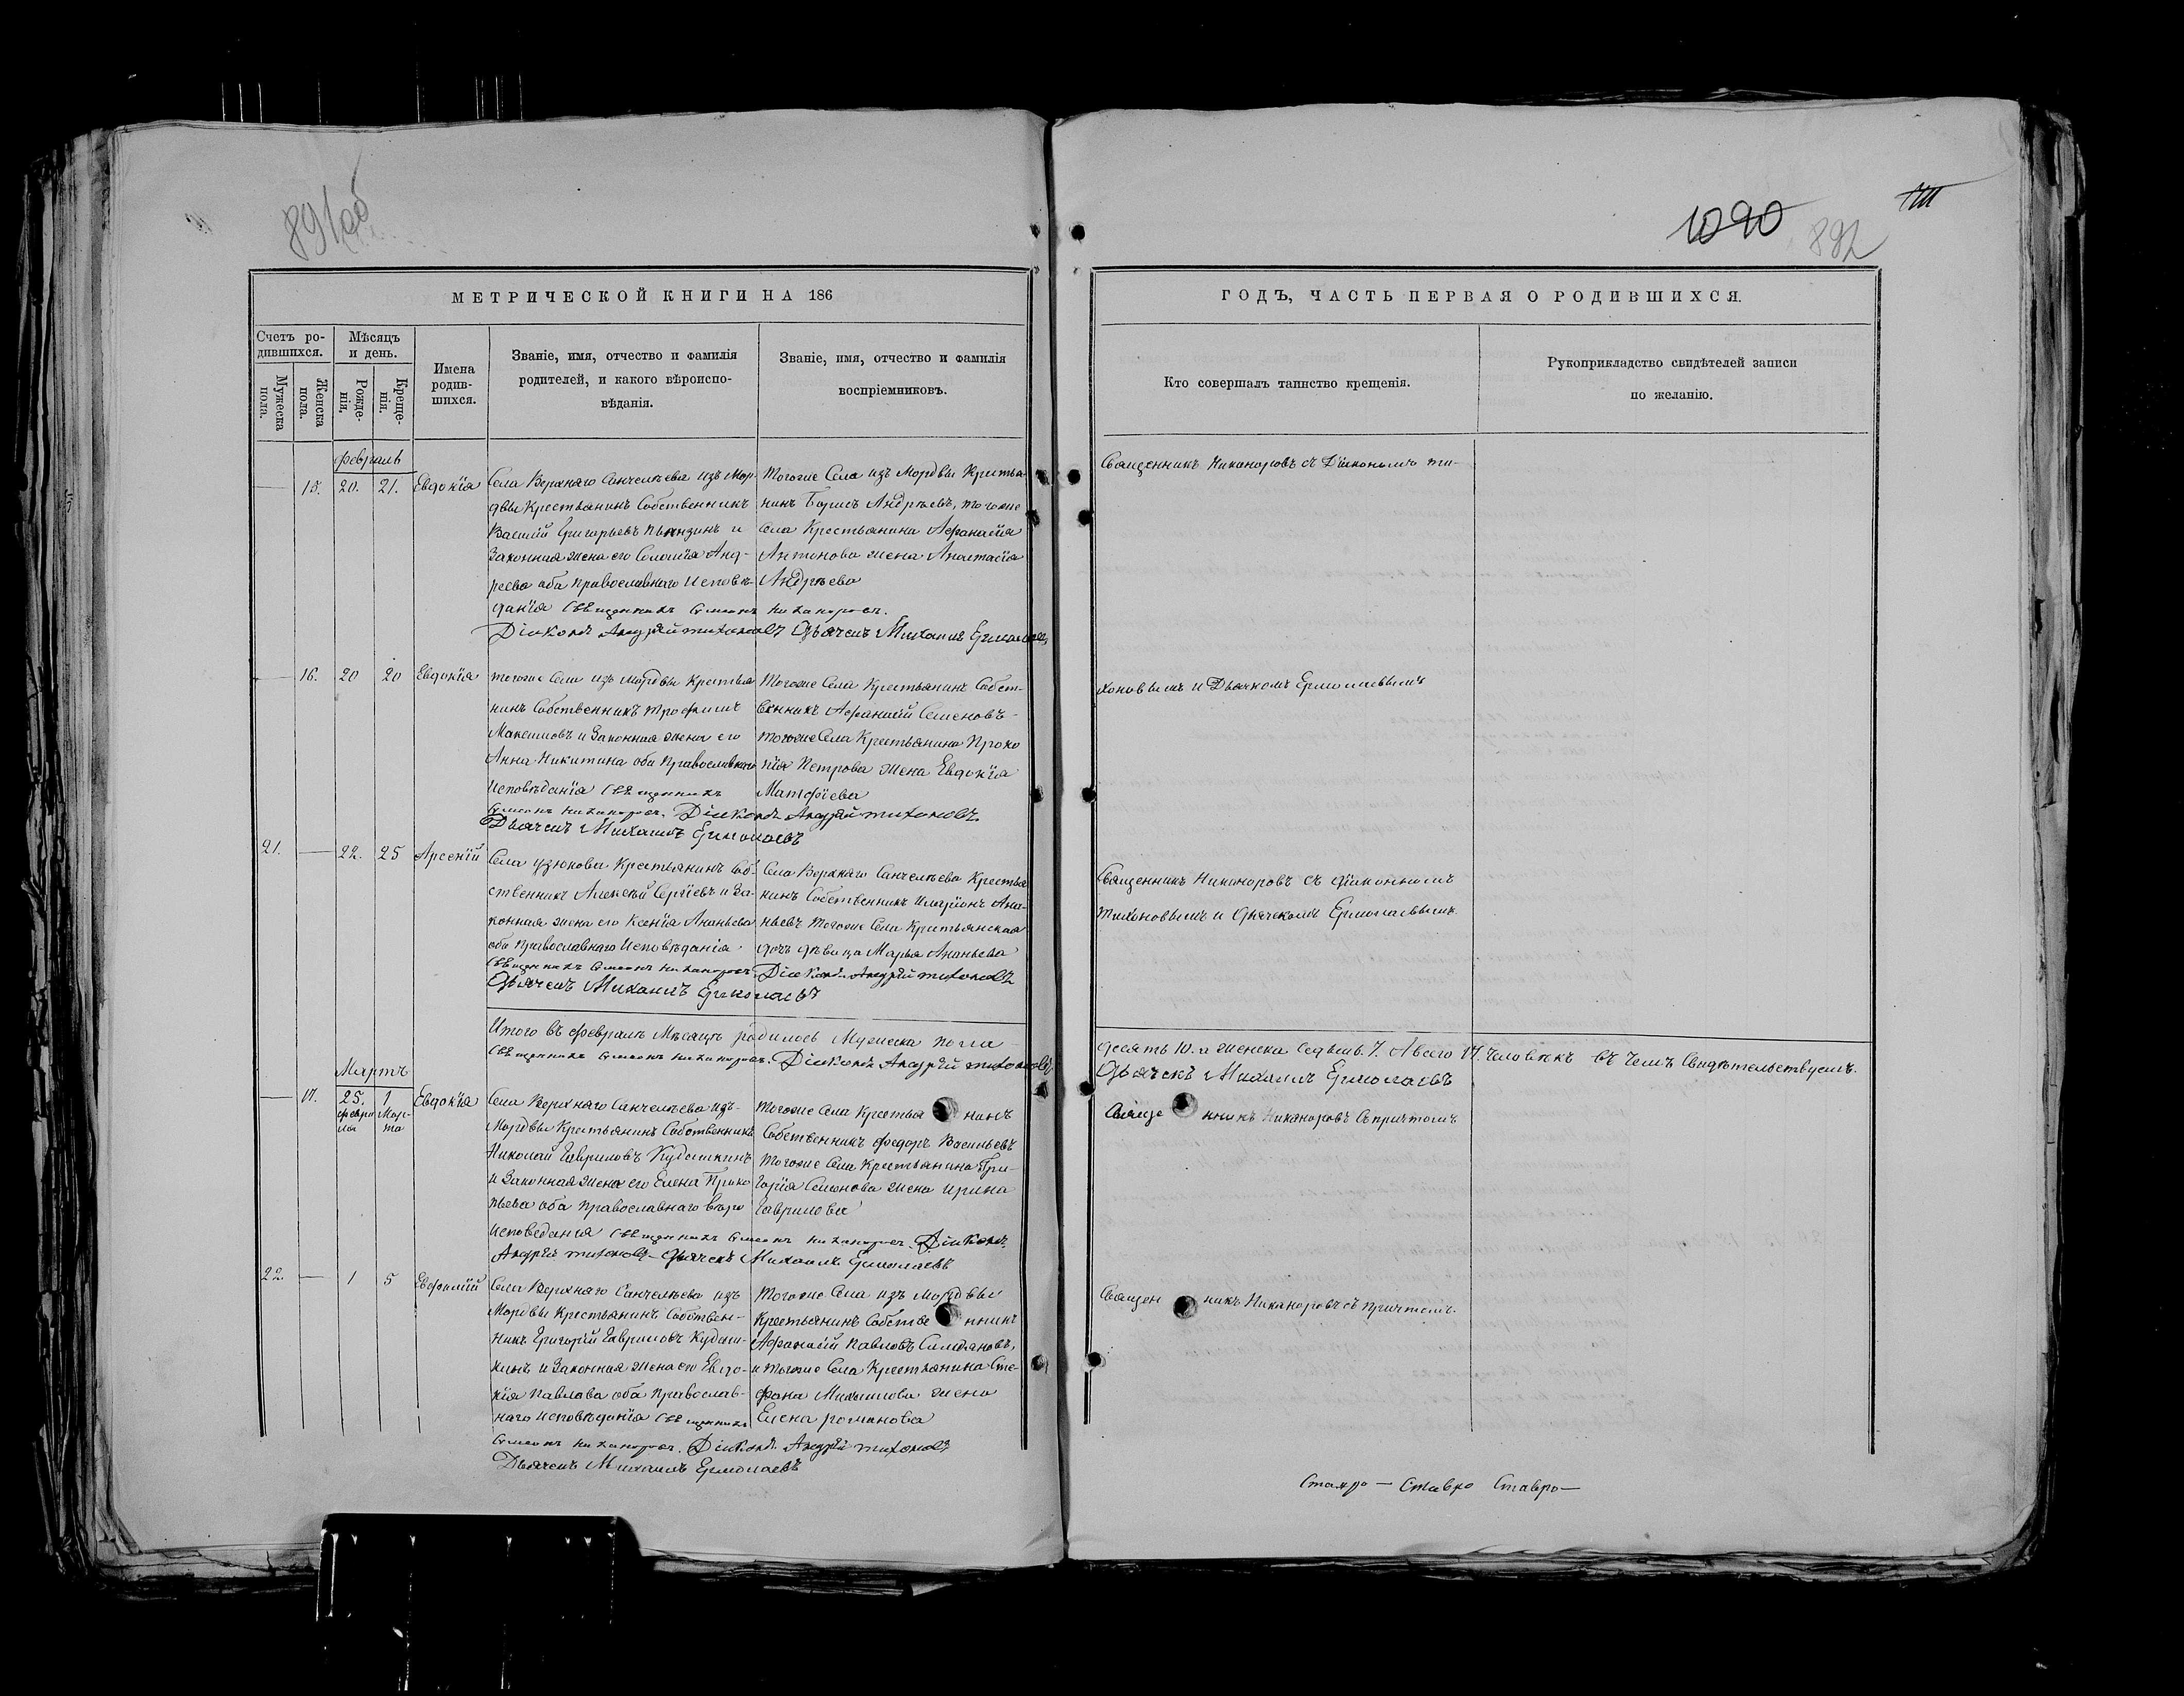 891об
1090
892
МЕТРИЧЕСКОЙ КНИГИ НА 186
ГОДЪ, ЧАСТЬ ПЕРВАЯ О РОДИВШИХСЯ.
Счетъ ро-
дившихся.
Мужеска
пола.
Женска
пола.
Мѣсяцъ
и день.
Рожде-
нія.
Креще-
нія.
Имена
родив-
шихся.
Званіе, имя, отчество и фамилія
родителей, и какого вѣроиспо-
вѣданія.
Званіе, имя, отчество и фамилія
воспріемниковъ.
Кто совершалъ таинство крещенія.
Рукоприкладство свидѣтелей записи
по желанію.
Февраль
— 15. 20. 21. Евдокія
Села Верхняго Санчелѣева изъ Мор-
двы Крестьянинъ Собственникъ
Василій Григорьевъ Пьянзинъ и
Законная жена его Соломія Анд-
реева оба православнаго исповѣ-
данія Священникъ Симеонъ Никаноровъ.
Діаконъ Андрей Тихоновъ Дьячекъ Михаилъ Ермолаевъ
Тогоже Села изъ Мордвы Крестья-
нинъ Борисъ Андрѣевъ, тогоже
Села Крестьянина Афанасія
Антонова жена Анастасія
Андрѣева
Священникъ Никаноровъ съ Діакономъ Ти-
— 16. 20 20 Евдокія
тогоже Села изъ Мордвы Крестья
нинъ Собственникъ Трофимъ
Максимовъ и Законная жена его
Анна Никитина оба Православнаго
Исповѣданія Священникъ
Симеонъ Никаноровъ. Діаконъ Андрей Тихоновъ.
Дьячекъ Михаилъ Ермолаевъ
Тогоже Села Крестьянинъ Собст-
венникъ Афанасій Семеновъ-
тогоже Села Крестьянина Проко
пія Петрова жена Евдокія
Матфіева
хоновымъ и Дьячкомъ Ермолаевымъ
21. — 22. 25 Арсеній
Села Узюкова Крестьянинъ Соб-
ственникъ Алексѣй Сергіевъ и За-
конная жена его Ксенія Ананьева
оба православнаго Исповѣданія
Священникъ Симеонъ Никаноровъ. Діаконъ Андрей Тихоновъ
Дьячекъ Михаилъ Ермолаевъ
Села Верхняго Санчелѣева Крестья
нинъ Собственникъ Иларіонъ Ана-
ньевъ Тогоже Села Крестьянская
дочь дѣвица Марья Ананьева
Священникъ Никаноровъ съ діакономъ
Тихоновымъ и дьячкомъ Ермолаевымъ.
Итого въ Февралѣ Мѣсяцѣ родилось Мужеска пола
десять 10. а женска седьмь. 7. А всего 17. Человѣкъ въ Чемъ Свидѣтельствуемъ.
Священникъ Симеонъ Никаноровъ. Діаконъ Андрей Тихоновъ
Дьячекъ Михаилъ Ермолаевъ
Мартъ
— 17. 25. Февра
ля 1 Мар-
та Евдокія
Села Верхняго Санчелѣева изъ-
Мордвы Крестьянинъ Собственникъ
Николай Гавриловъ Кудашкинъ
и Законная жена его Елена Проко
пьева оба православнаго вѣро
исповеданія Священникъ Симеонъ Никаноровъ. Діаконъ
Андрей Тихоновъ- Дьячекъ Михаилъ Ермолаевъ
Тогоже Села Крестьянинъ
Собственникъ Федоръ Васильевъ
Тогоже Села Крестьянина Гри-
горія Семенова жена Ирина
Гаврилова
Священникъ Никаноровъ съ причтомъ
22. — 1 5 Евфимій
Села Верхняго Санчелѣева изъ
Мордвы Крестьянинъ Собствен-
никъ Григорій Гавриловъ Кудаш-
кинъ и Законная жена его Евдо-
кія Павлова оба Православ-
наго исповѣданія Священникъ
Симеонъ Никаноровъ. Діаконъ Андрей Тихоновъ
Дьячекъ Михаилъ Ермолаевъ
Тогоже Села изъ Мордвы
Крестьянинъ Собственникъ
Афанасій Павловъ
и тогоже Села Крестьянина Сте-
фана Михайлова жена
Елена романова
Священникъ Никаноровъ съ Причтомъ.
Ставро— Ставро Ставро—